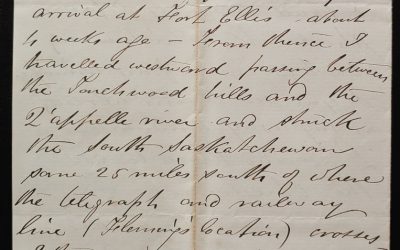 arrival at Fort Ellis about
4 weeks ago - From thence I
travelled westward passing between
the Touchwood hills and the
Q'appelle river and struck
the South Saskatchewan
some 25 miles south of where
the telegraph and railway
line (Fleming's location) crosses